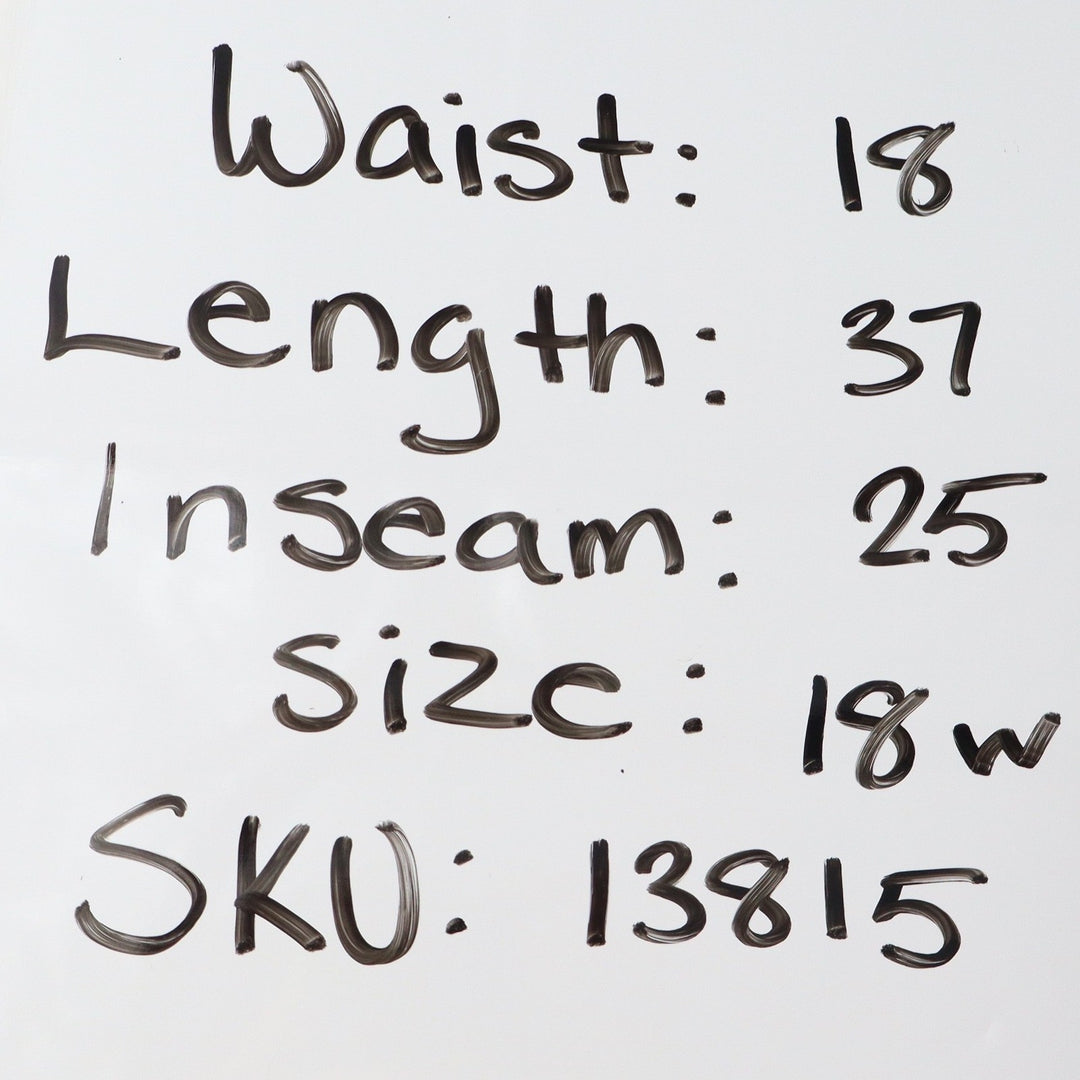 Waist: 18
Length: 37
Inseam: 25
Size: 18w
SKU: 13815